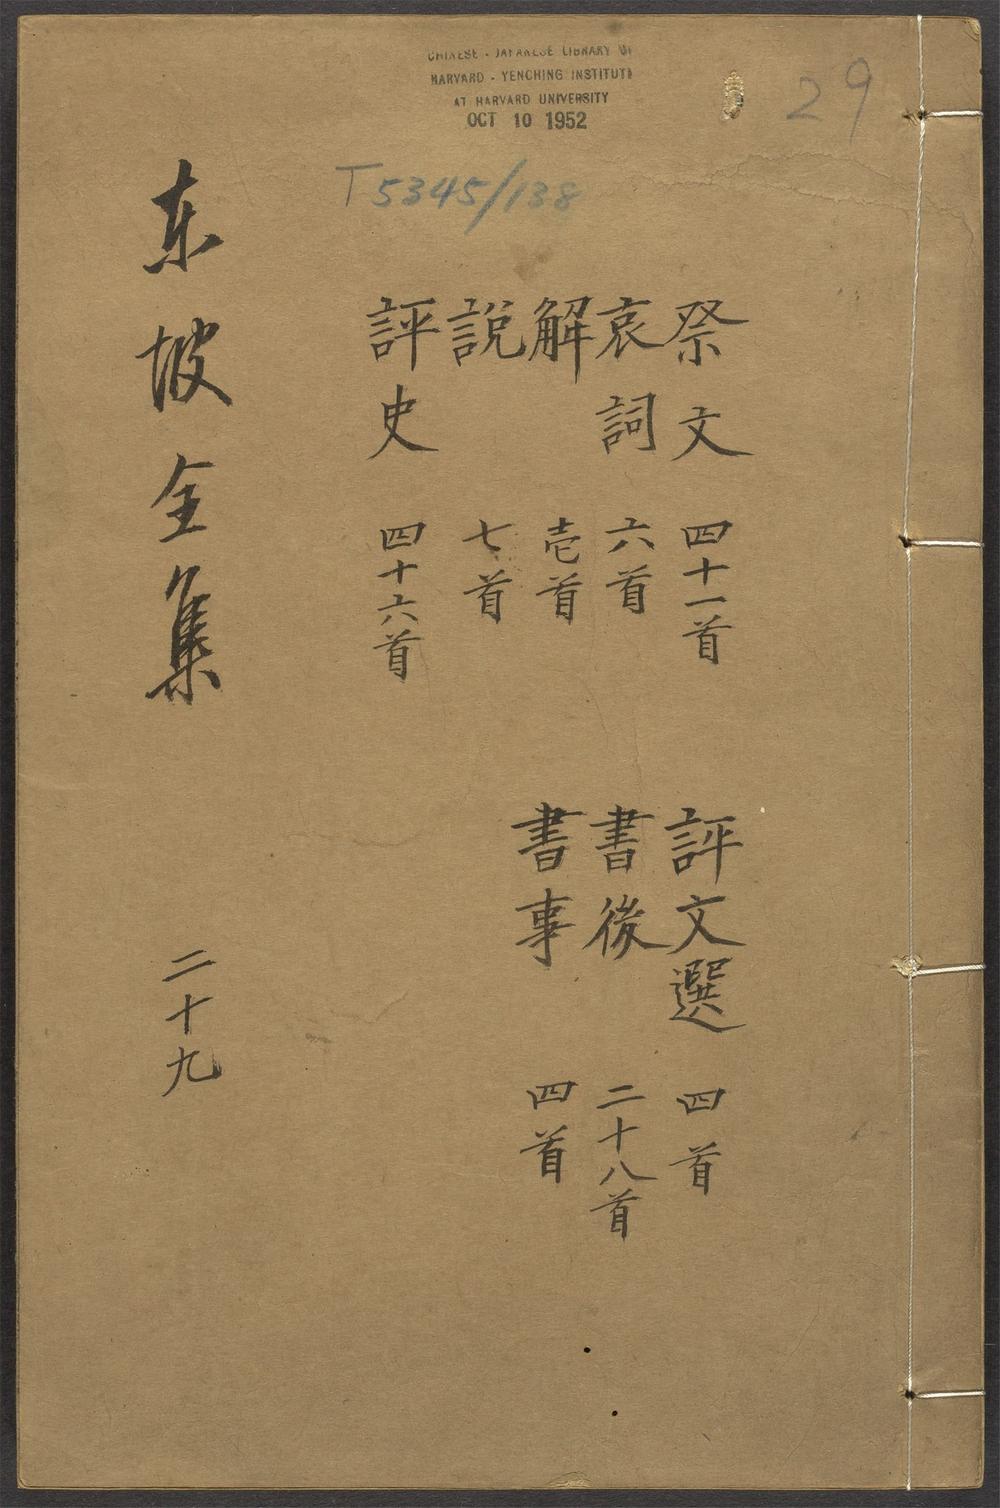 CHINESE - JAPANESE LIBRARY OF
HARVARD - YENCHING INSTITUTE
AT HARVARD UNIVERSITY
OCT 10 1952
29
T5345/138
祭文 四十一首
哀詞 六首
解 壱首
說 七首
評史 四十六首
評文選 四首
書後 二十八首
書事 四首
东坡全集 二十九